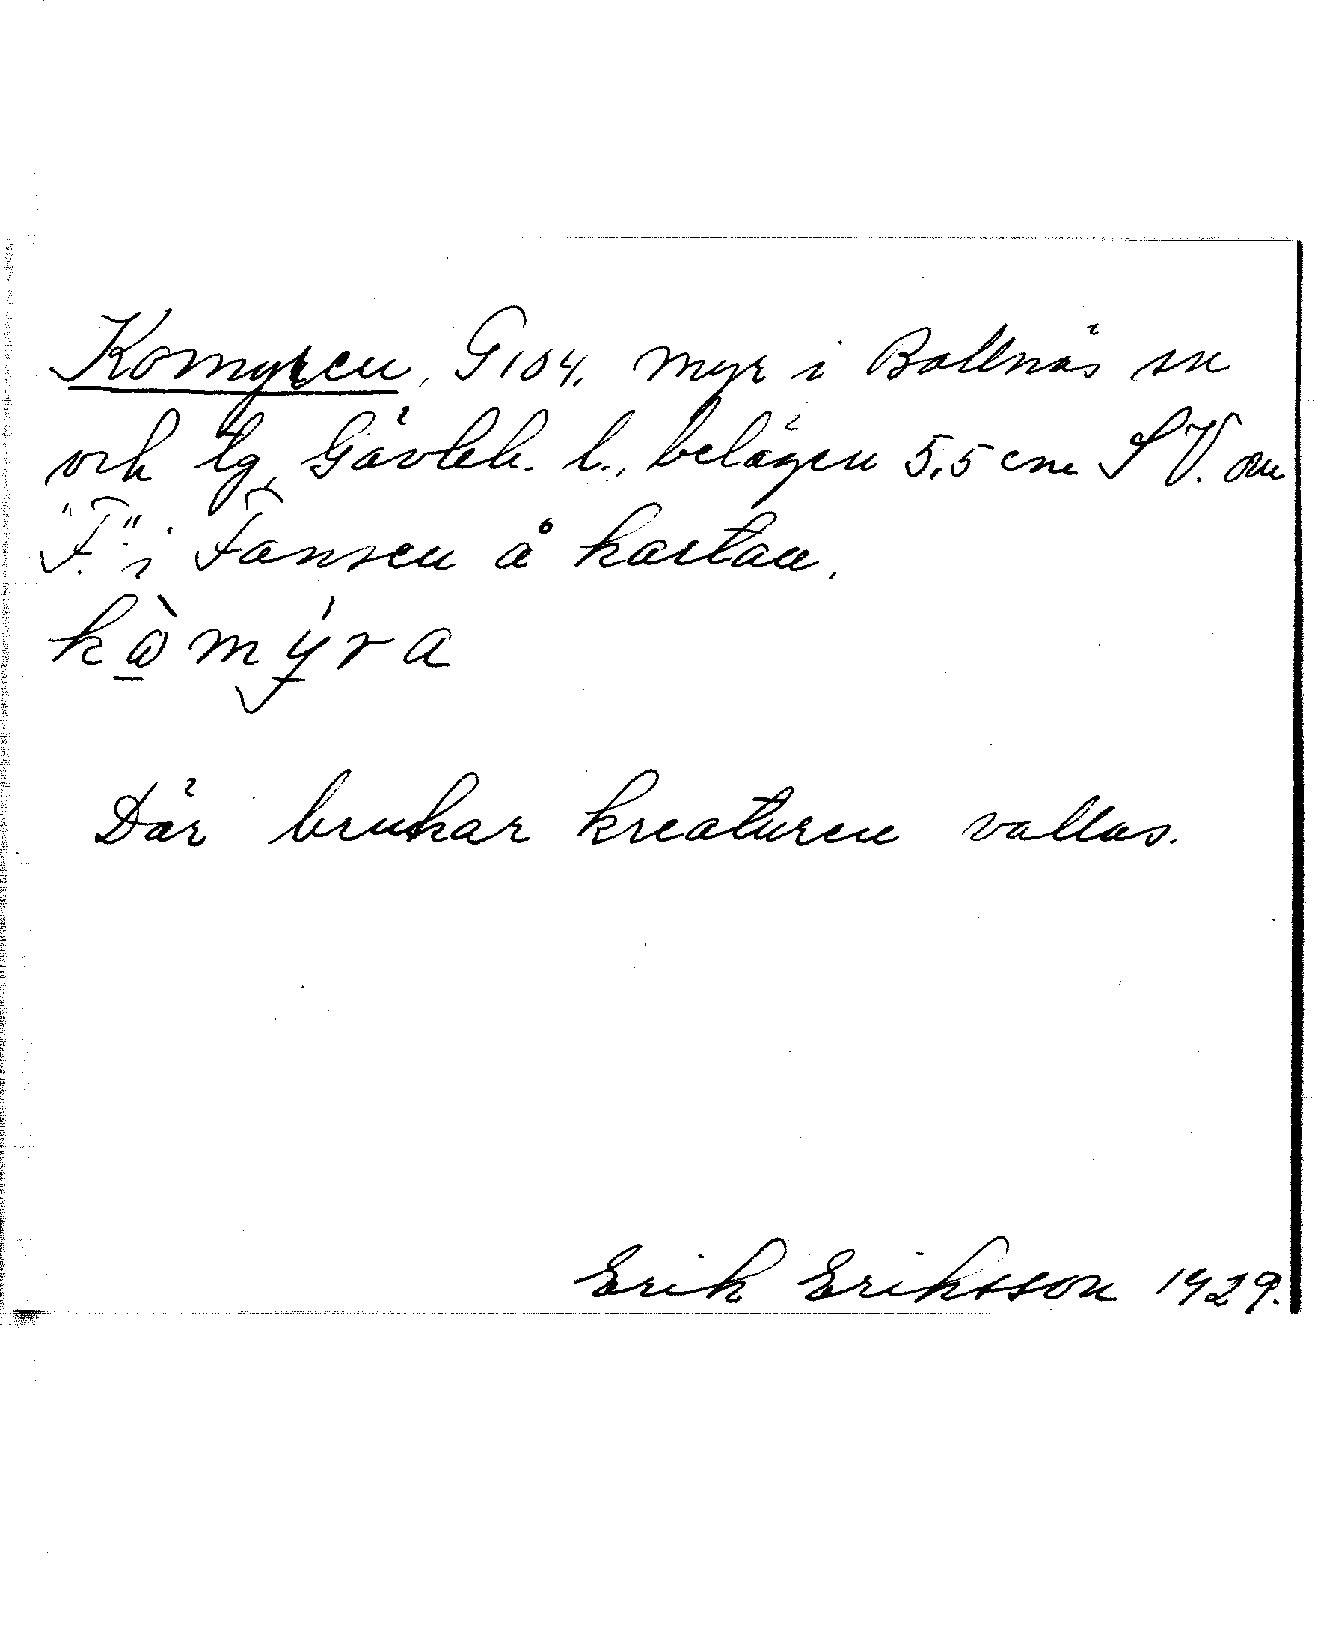 Komyren, G 104. myr i Bollnäs sn
och tg, Gävleb. l., belägen 5,5 cm S V. om
"F." i Fansen å kartan.
kὼmýra
Där brukar kreaturen vallas.
Erik Eriksson 1929.